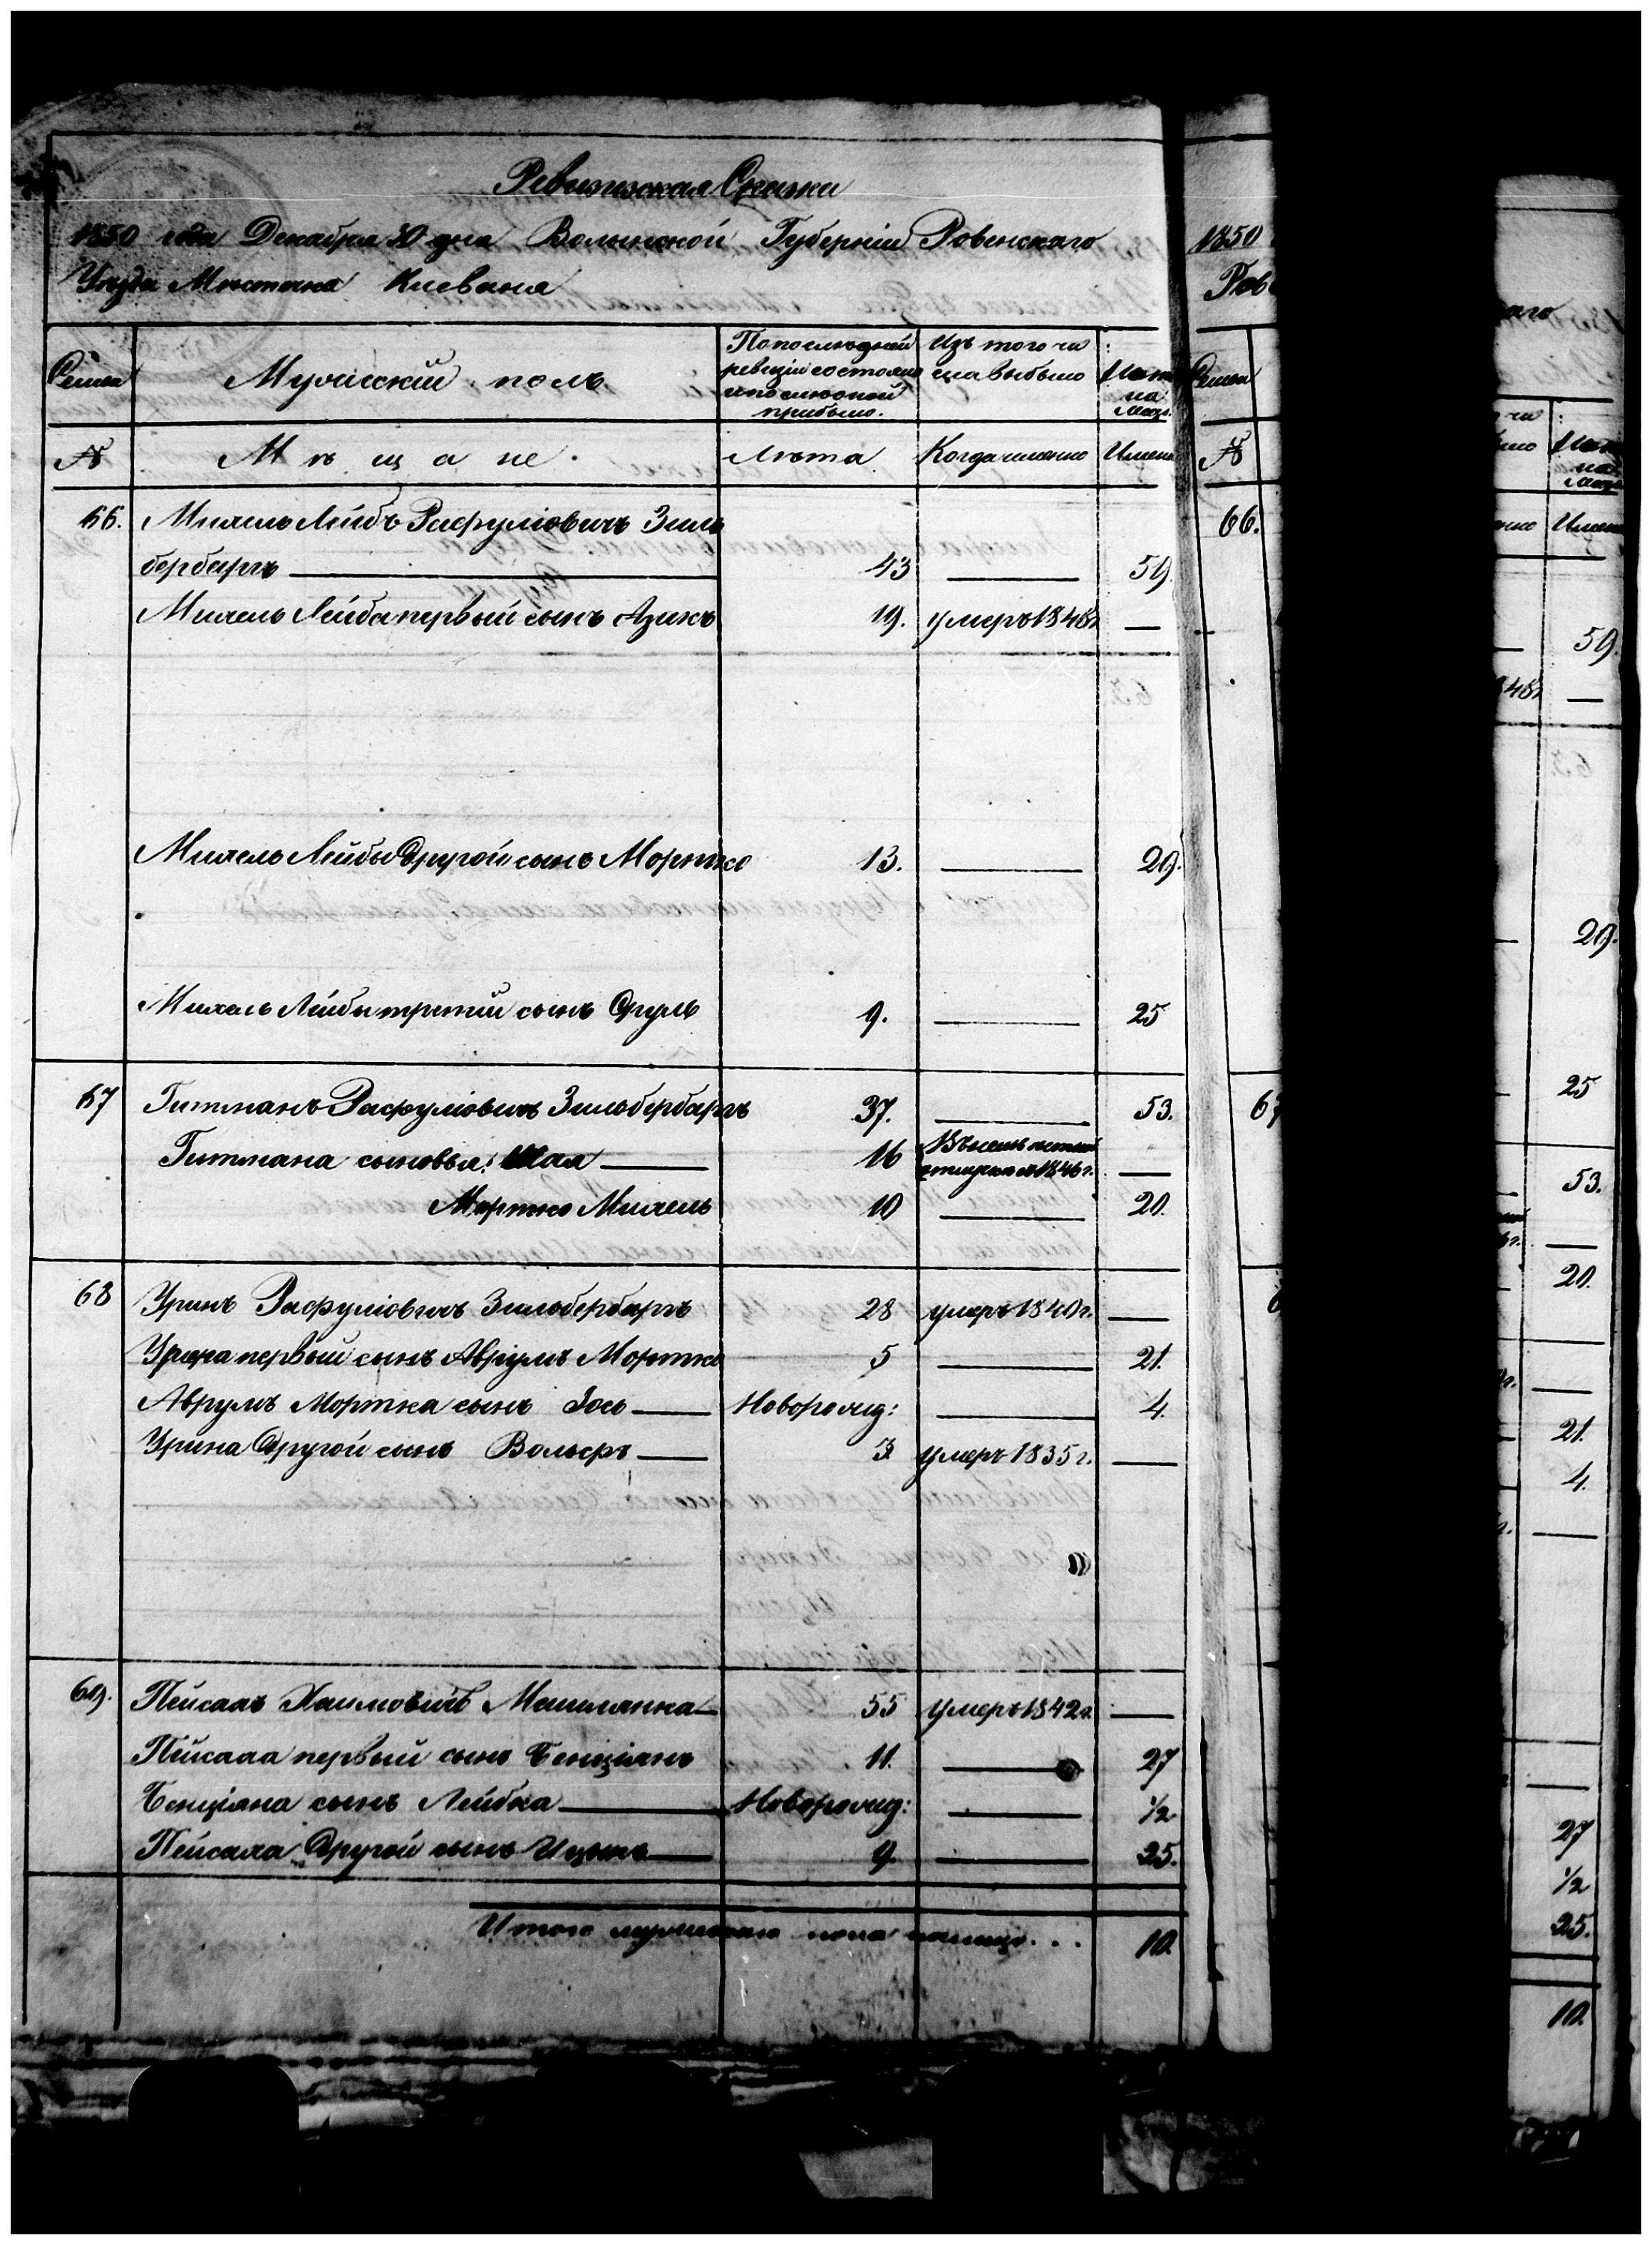 Ревизская Сказка
1850 года Декабря 30 дня Волынской Губерніи Ровенскаго
Уезда Местечка Клеваня
Семьи
Мужескій полъ
По последней
ревизіи состояло
и после оной
прибыло.
Изъ того чи
сла выбыло
Ныне
на
лицо.
№
Мещане.
Лета
Когда именно
Имена
66.
Михель Лейбъ Расфуліовичъ Зиль
бербаргъ
43
59.
Михель Лейба первый сынъ Азикъ
19.
умеръ 1848 г.
Михель Лейбы Другой сынъ Мортко
13.
29.
Михель Лейбы третій сынъ Сруль
9.
25
67
Гитманъ Расфуліовичъ Зильбербаргъ
37.
53.
Гитмана сыновья: Шая
16
1846 г.
Мортко Михель
10
20.
68
Уринъ Расфуліовичъ Зильбербаргъ
28
умеръ 1840 г.
Урина первый сынъ Аврумъ Мортко
5
21.
Аврумъ Мортка сынъ Іось
Новорожд:
4.
Урина Другой сынъ Вольфъ
3.
умеръ 1835 г.
69.
Пейсахъ Хаимовичъ
55
умеръ 1842 г.
Пейсаха первый сынъ Бенціянъ
11.
27
Бенціяна сынъ Лейбка
Новорожд:
1/2
Пейсаха Другой сынъ Ицыкъ
9.
25.
Итого мужескаго пола налицо...
10.
1850
Ров
Семьи
№
66.
67
аго
59.
29.
25
53.
20.
21.
4.
27
1/2
25.
10.